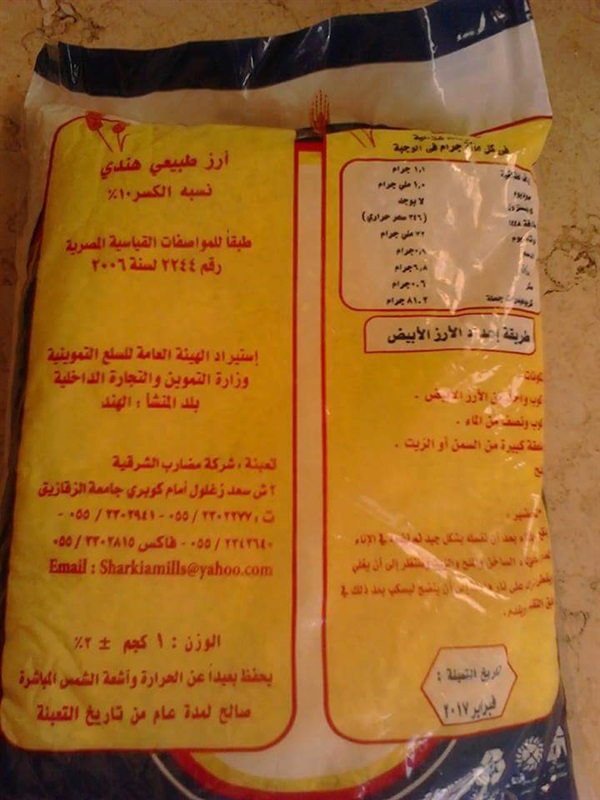 أرز طبيعي هندي
نسبه الكسر ١٠٪
طبقاً للمواصفات القياسية المصرية
رقم ٢٢٤٤ لسنة ٢٠٠٦
إستيراد الهيئة العامة للسلع التموينية
وزارة التموين والتجارة الداخلية
بلد المنشأ : الهند
تعبئة : شركة مضارب الشرقية
٢ ش سعد زغلول أمام كوبري جامعة الزقازيق
ت : ٢٣٠٢٢٧٧ / ٠٥٥ - ٢٣٠٢٩٤١ / ٠٥٥ -
٢٣٤٢٦٤٠ / ٠٥٥ - فاكس ٢٣٠٢٨١٥ / ٠٥٥
Email : Sharkiamills@yahoo.com
الوزن : ١ كجم ± ٢٪
يحفظ بعيداً عن الحرارة وأشعة الشمس المباشرة
صالح لمدة عام من تاريخ التعبئة
فى كل مائة جرام فى الوجبة
١,١ جرام
١,٠ ملى جرام
لا يوجد
(٣٤٦ سعر حرارى)
٢٢ ملى جرام
٠,٩ جرام
٦,٨ جرام
٠.٦ جرام
٨١.٣ جرام
طريقة إعداد الأرز الأبيض
الأرز الأبيض -
كوب ونصف من الماء -
كبيرة من السمن أو الزيت -
بعد أن تغسله بشكل جيد فى الإناء
إلى أن يغلى
على نار أن ينضج ليسكب بعد ذلك فى
تاريخ التعبئة :
فبراير ٢٠١٧